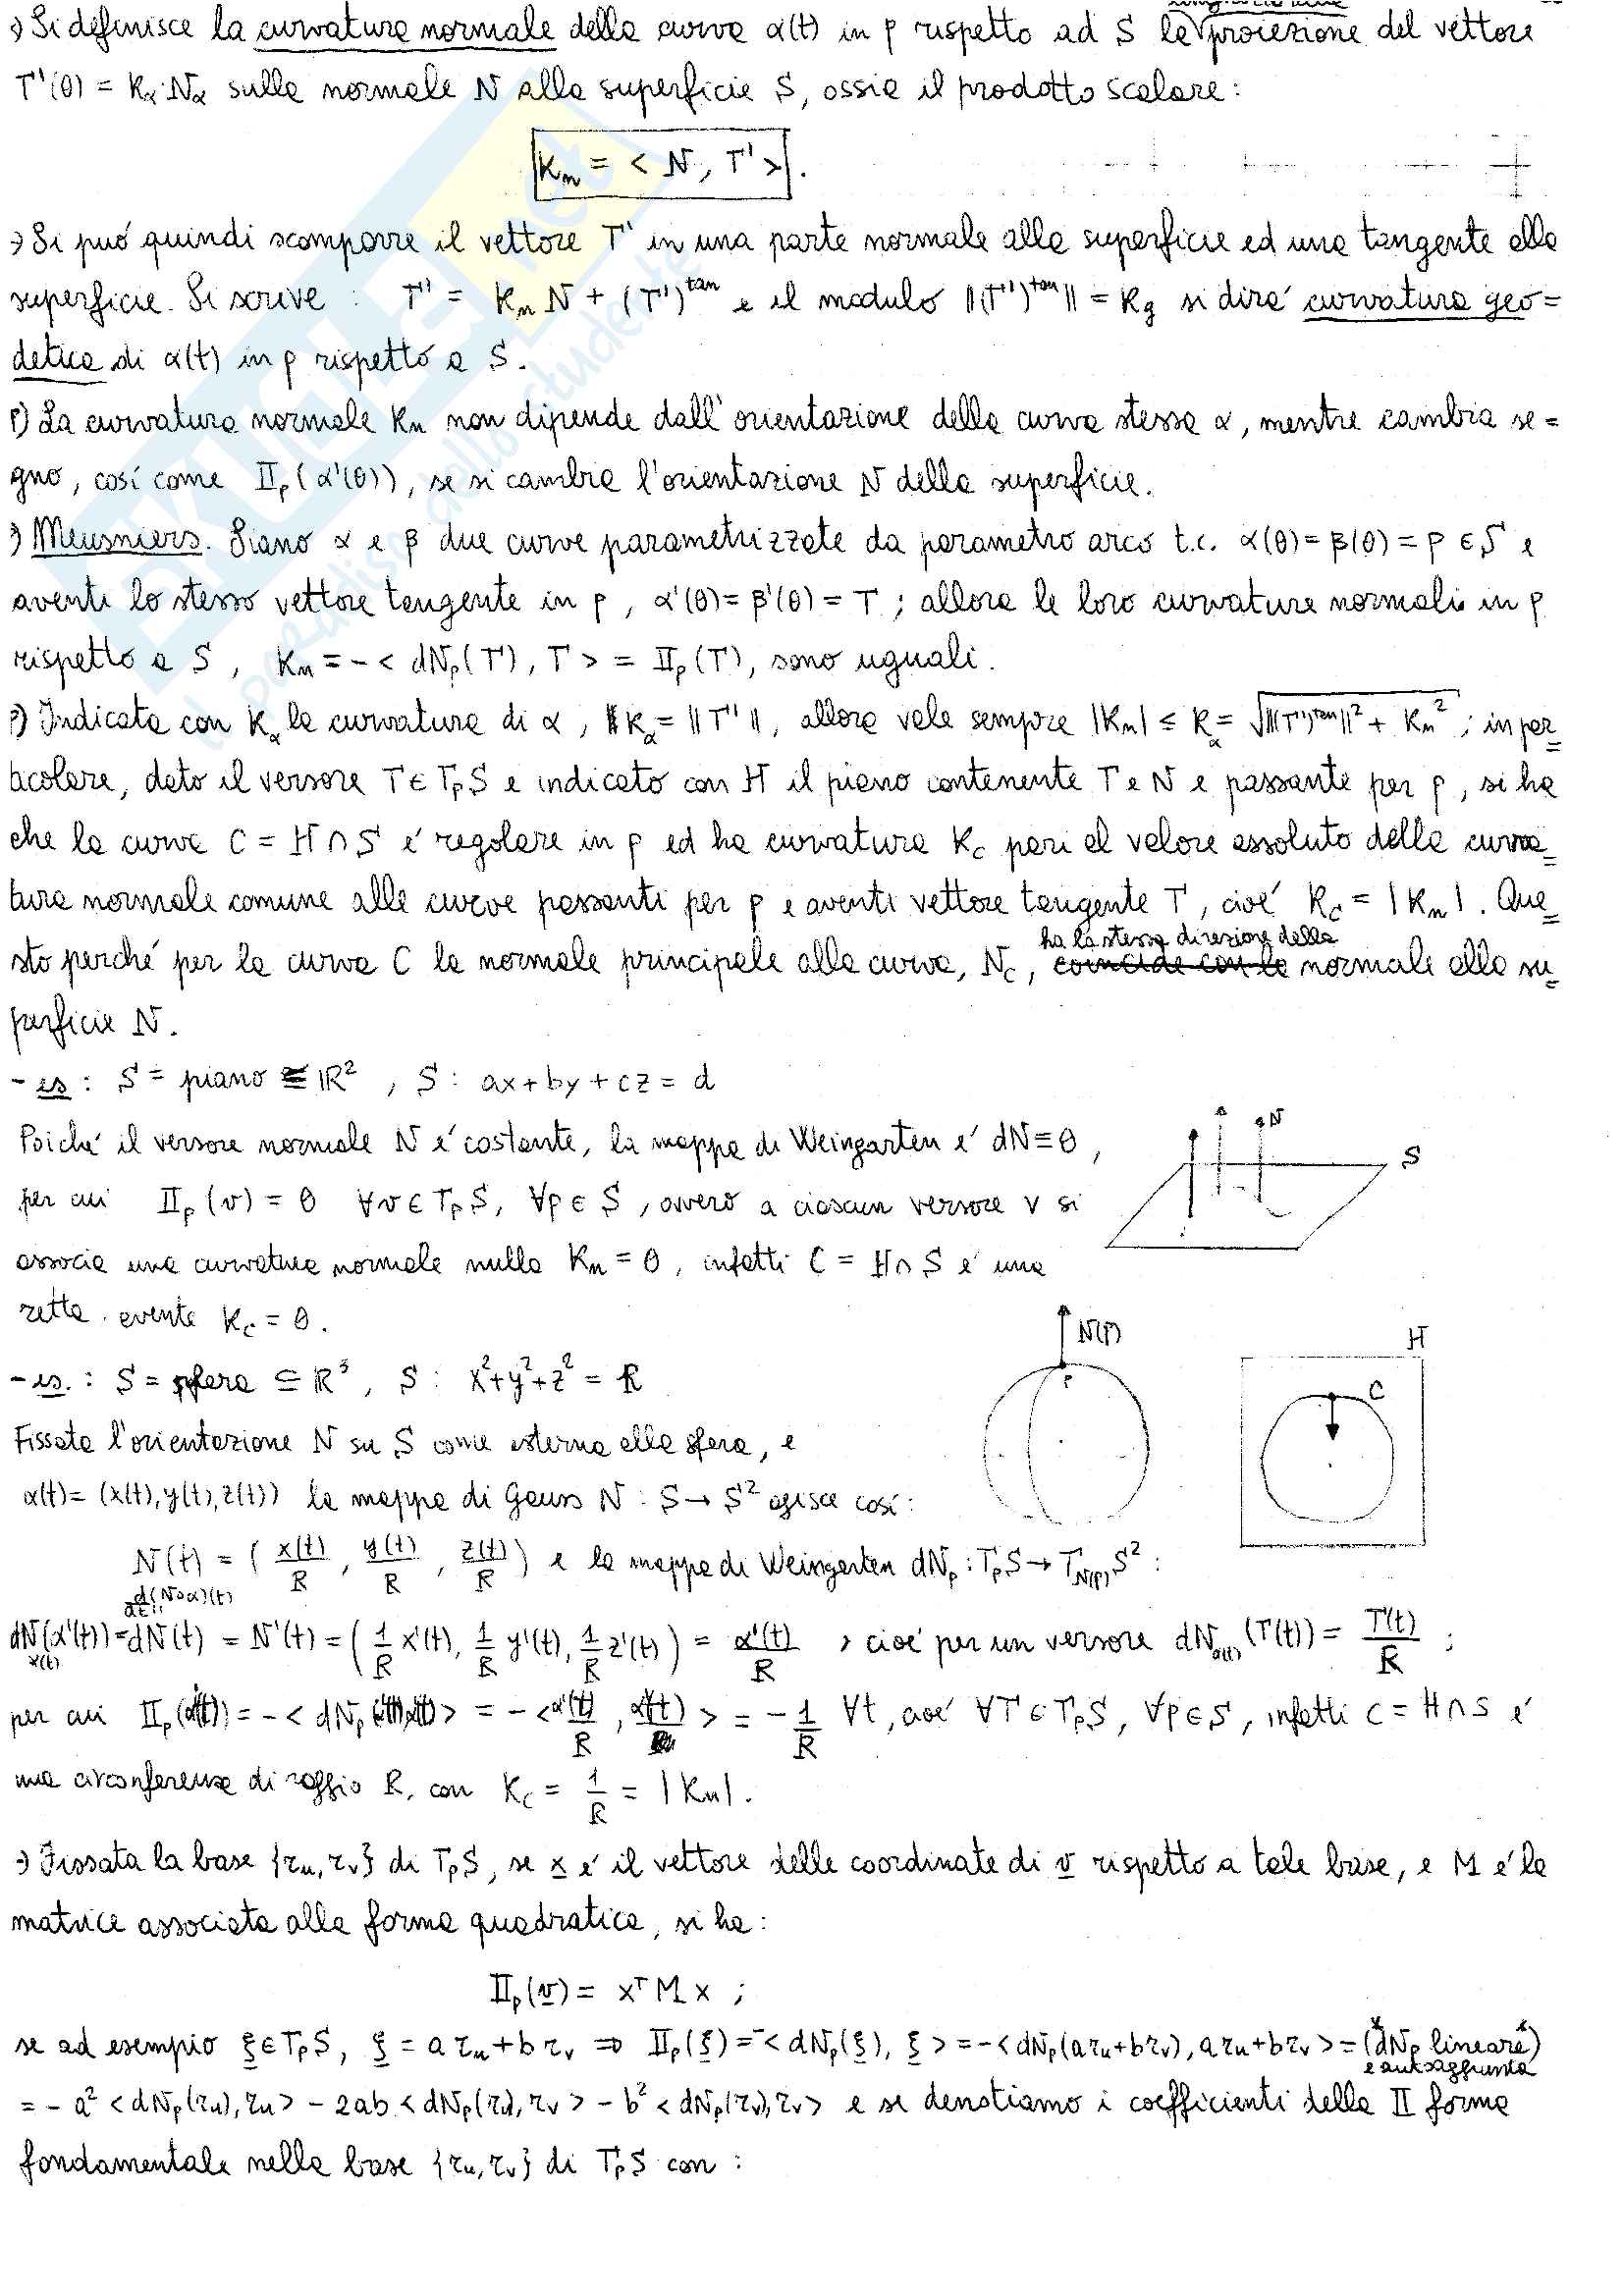 Si definisce la curvatura normale della curva α(t) in p rispetto ad S la proiezione del vettore
T'(0) = Kα·Nα sulla normale N alla superficie S, ossia il prodotto scalare:
Kn = < N, T' >.
Si può quindi scomporre il vettore T' in una parte normale alla superficie ed una tangente alla
superficie. Si scrive : T' = Kn N + (T')^tan e il modulo ||(T')^tan|| = Kg si dirà curvatura geo=
detica di α(t) in p rispetto a S.
La curvatura normale Kn non dipende dall'orientazione della curva stessa α, mentre cambia se=
gno, così come IIp(α'(0)), se si cambia l'orientazione N della superficie.
Meusniers. Siano α e β due curve parametrizzate da parametro arco t.c. α(0) = β(0) = p ∈ S e
aventi lo stesso vettore tangente in p, α'(0) = β'(0) = T ; allora le loro curvature normali in p
rispetto a S, Kn = - < dNp(T), T > = IIp(T), sono uguali.
Indicata con Kα la curvatura di α, Kα = ||T'||, allora vale sempre |Kn| ≤ Kα = √(||(T')^tan||² + Kn²) ; in par=
ticolare, dato il versore T ∈ TpS e indicato con H il piano contenente T e N e passante per p, si ha
che la curva C = H ∩ S é regolare in p ed ha curvatura Kc pari al valore assoluto della curva=
tura normale comune alle curve passanti per p e aventi vettore tangente T, cioé Kc = |Kn|. Que=
sto perché per la curva C la normale principale alla curva, Nc, ha la stessa direzione della normale alla su=
perficie N.
- es : S = piano ≅ ℝ², S : ax + by + cz = d
Poiché il versore normale N é costante, la mappa di Weingarten é dN ≡ 0,
per cui IIp(v) = 0 ∀v ∈ TpS, ∀p ∈ S, ovvero a ciascun versore v si
associa una curvatura normale nulla Kn = 0, infatti C = H ∩ S é una
retta avente Kc = 0.
N
S
- es. : S = sfera ⊆ ℝ³, S : x² + y² + z² = R
Fissata l'orientazione N su S come esterna alla sfera, e
α(t) = (x(t), y(t), z(t)) la mappa di Gauss N : S → S² agisce così :
N(p)
p
H
C
N(t) = ( x(t)/R , y(t)/R , z(t)/R ) e la mappa di Weingarten dNp : TpS → T_N(p) S² :
d(N∘α)(t)
dt
dN_α(t)(α'(t)) = dN(t) = N'(t) = ( 1/R x'(t), 1/R y'(t), 1/R z'(t) ) = α'(t)/R , cioé per un versore dN_α(t)(T(t)) = T(t)/R ;
per cui IIp(α'(t)) = - < dNp > = - < α'(t)/R , α'(t) > = - 1/R ∀t, cioé ∀T ∈ TpS, ∀p ∈ S, infatti C = H ∩ S é
una circonferenza di raggio R, con Kc = 1/R = |Kn|.
Fissata la base {ru, rv} di TpS, se x é il vettore delle coordinate di v rispetto a tale base, e M é la
matrice associata alla forma quadratica, si ha :
IIp(v) = xᵀ M x ;
se ad esempio ξ ∈ TpS, ξ = a ru + b rv ⇒ IIp(ξ) = - < dNp(ξ), ξ > = - < dNp(a ru + b rv), a ru + b rv > = (dNp lineare
e autoaggiunta)
= - a² < dNp(ru), ru > - 2ab < dNp(ru), rv > - b² < dNp(rv), rv > e se denotiamo i coefficienti della II forma
fondamentale nella base {ru, rv} di TpS con :